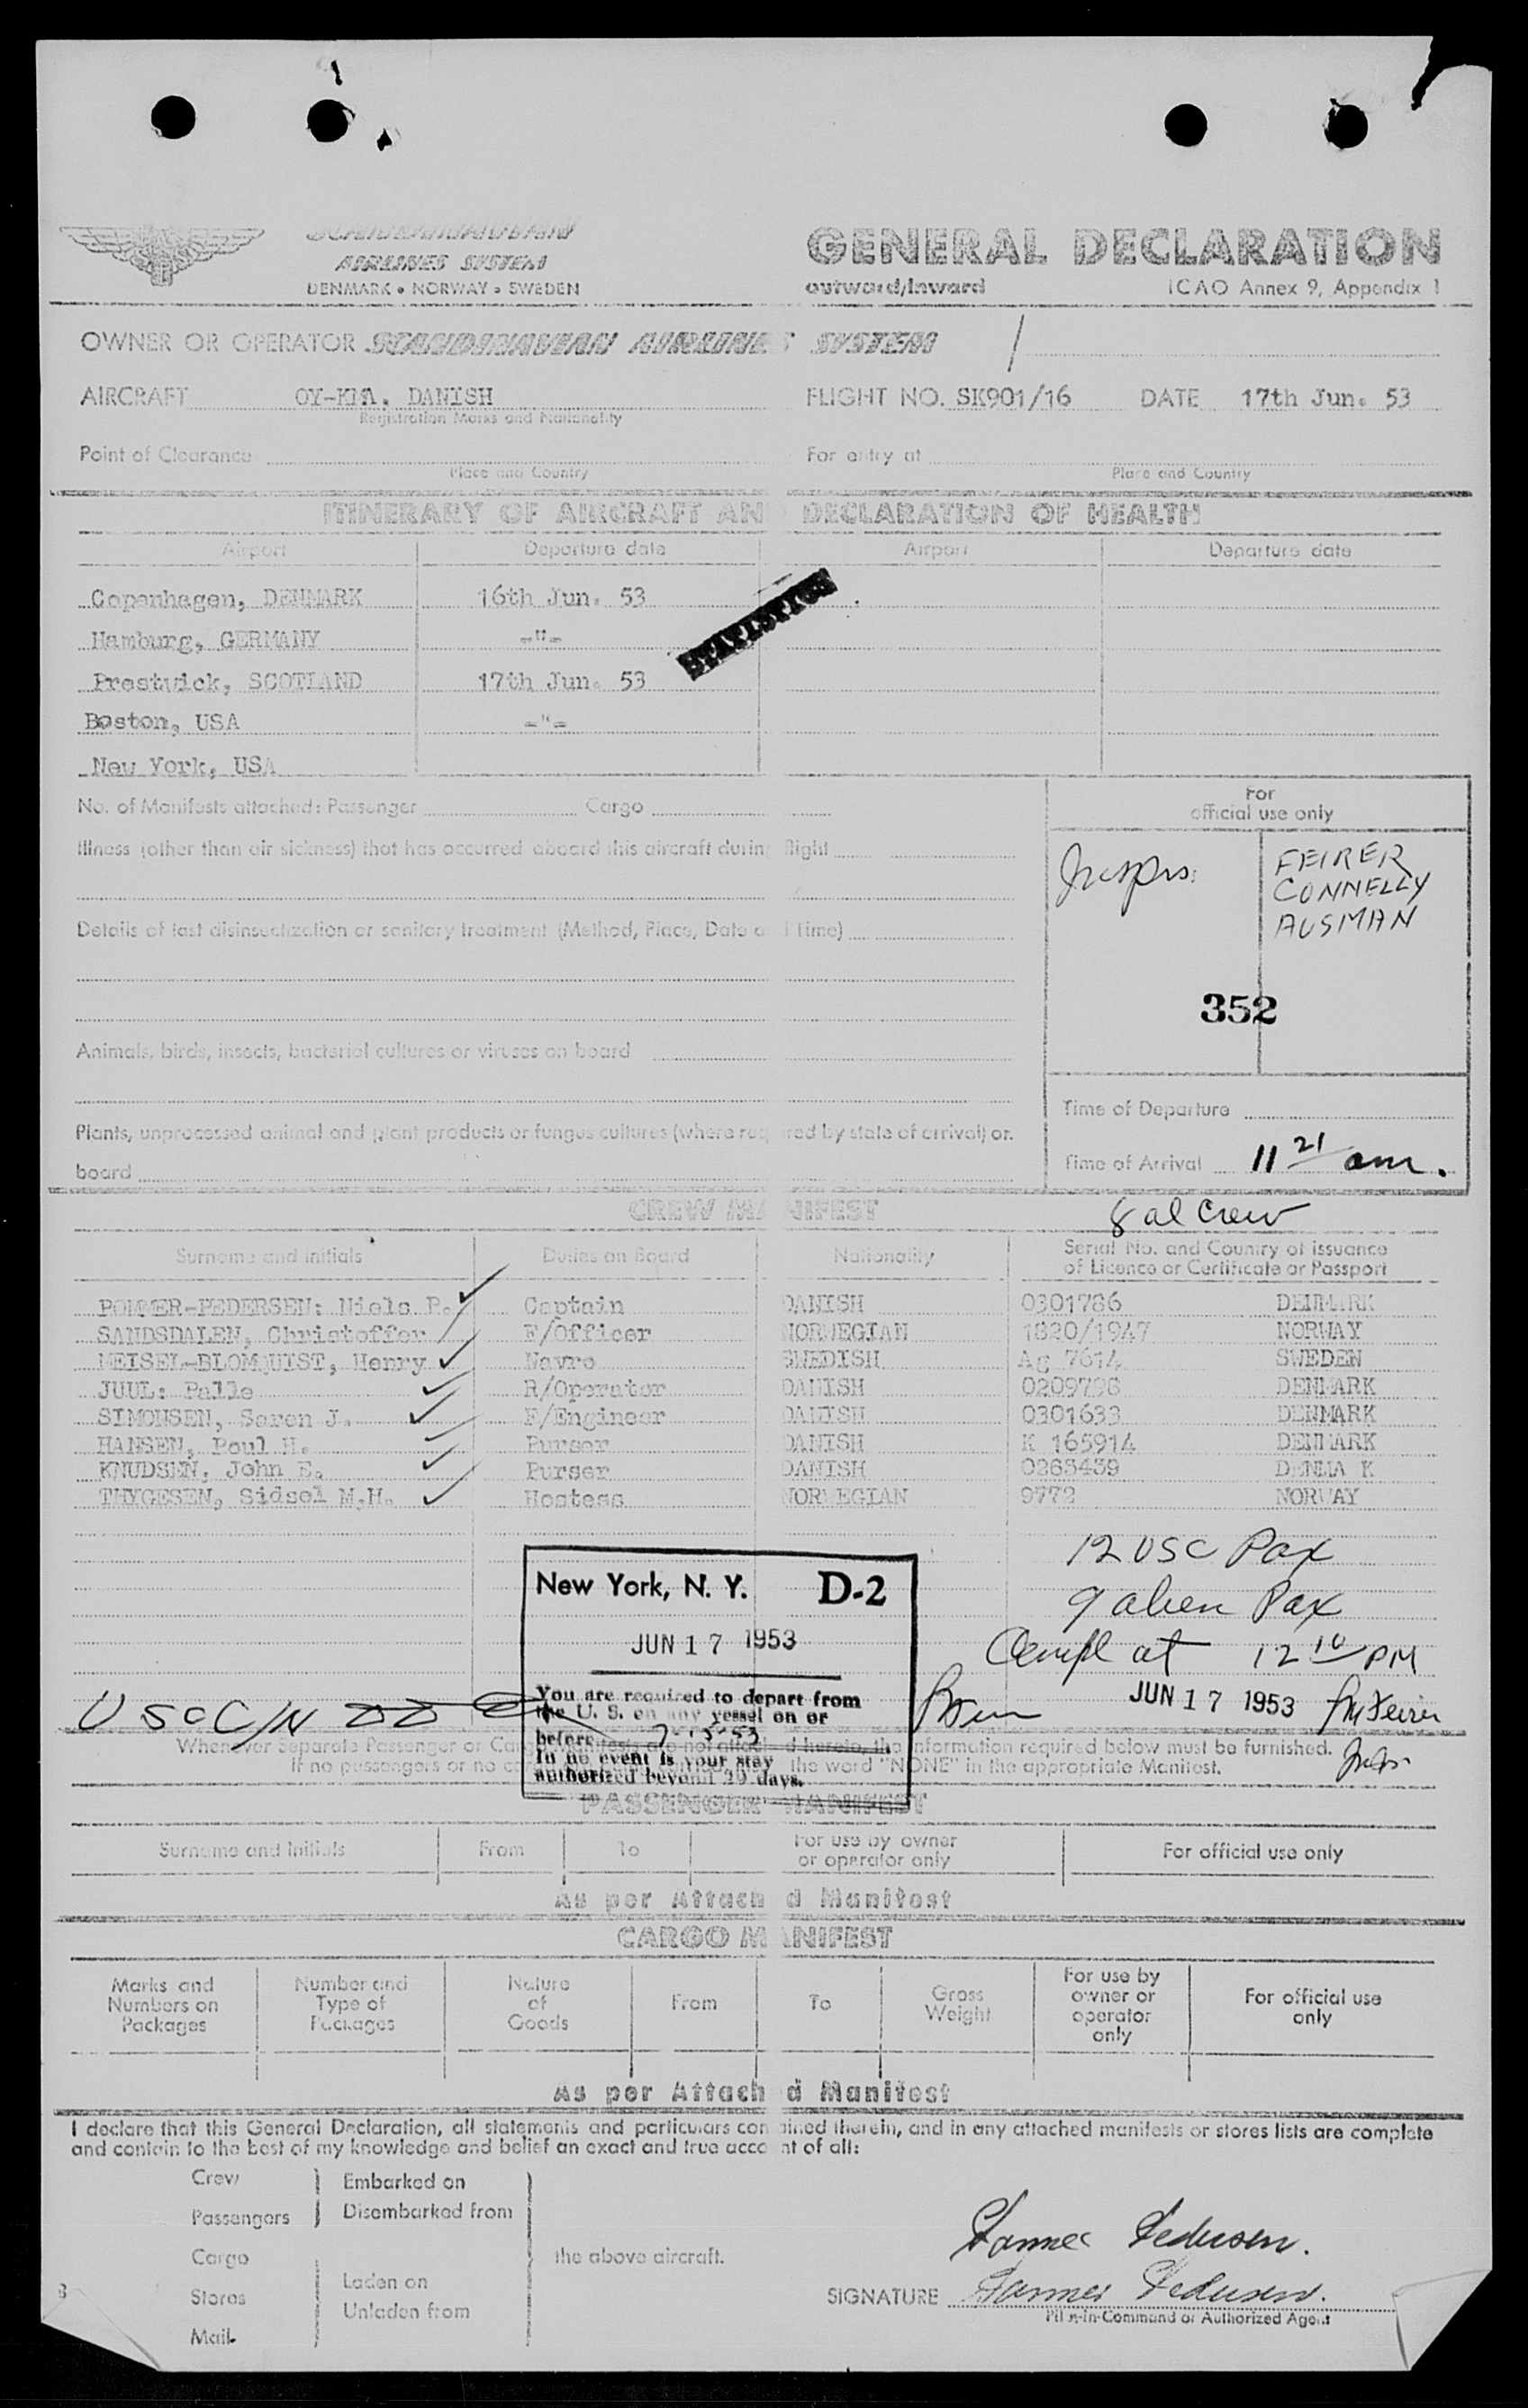 SCANDINAVIAN
AIRLINES SYSTEM
DENMARK • NORWAY • SWEDEN
GENERAL DECLARATION
outward/inward
ICAO Annex 9, Appendix 1
OWNER OR OPERATOR SCANDINAVIAN AIRLINES SYSTEM
AIRCRAFT DANISH
Registration Marks and Nationality
FLIGHT NO. SK901/16 DATE 17th Jun. 53
Point of Clearance
Place and Country
For entry at
Place and Country
ITINERARY OF AIRCRAFT AN DECLARATION OF HEALTH
Airport Departure date Airport Departure date
Copenhagen, DENMARK 16th Jun. 53
Hamburg, GERMANY -"-
STATISTICS
Prestwick, SCOTLAND 17th Jun. 53
Boston, USA -"-
New York, USA
No. of Manifests attached: Passenger Cargo
For
official use only
Illness (other than air sickness) that has occurred aboard this aircraft during flight
Insprs:
FEIRER
CONNELLY
AUSMAN
Details of last disinsectization or sanitary treatment (Method, Place, Date a Time)
352
Animals, birds, insects, bacterial cultures or viruses on board
Time of Departure
Plants, unprocessed animal and plant products or fungus cultures (where req red by state of arrival) or.
board
Time of Arrival 11 21 am.
CREW MA NIFEST
8 al Crew
Surname and initials Duties on Board Nationality Serial No. and Country of issuance
of Licence or Certificate or Passport
POMMER-PEDERSEN: Niels P. Captain DANISH 0301786 DENMARK
SANDSDALEN, Christoffer F/Officer NORWEGIAN 1820/1947 NORWAY
MEISEL-BLOMQUIST, Henry Navro SWEDISH Ag 7614 SWEDEN
JUUL: Palle R/Operator DANISH 0209796 DENMARK
SIMONSEN, Søren J. F/Engineer DANISH 0301633 DENMARK
HANSEN, Poul H. Purser DANISH K 165914 DENMARK
KNUDSEN, John E. Purser DANISH 0265439 DENMA K
THYGESEN, Sidsel M.H. Hostess NORWEGIAN 9772 NORWAY
12 USC Pax
9 alien Pax
Compl at 12 10 PM
New York, N. Y. D-2
JUN 17 1953
You are required to depart from
the U. S. on any vessel on or
before
In no event is your stay
authorized beyond 29 days.
JUN 17 1953
Whenever Separate Passenger or Ca manifests are not attached herein, the information required below must be furnished.
If no passengers or no ca the word "NONE" in the appropriate Manifest.
PASSENGER MANIFEST
Surname and Initials From To For use by owner
or operator only For official use only
As per Attach d Manifest
CARGO M NIFEST
Marks and
Numbers on
Packages
Number and
Type of
Packages
Nature
of
Goods
From
To
Gross
Weight
For use by
owner or
operator
only
For official use
only
As per Attach d Manifest
I declare that this General Declaration, all statements and particulars con ained therein, and in any attached manifests or stores lists are complete
and contain to the best of my knowledge and belief an exact and true acco nt of all:
Crew Embarked on
Passengers Disembarked from
Cargo the above aircraft.
Laden on
Stores
Unladen from
Mail
Pedersen.
SIGNATURE Pedersen.
Pil t-in-Command or Authorized Agent